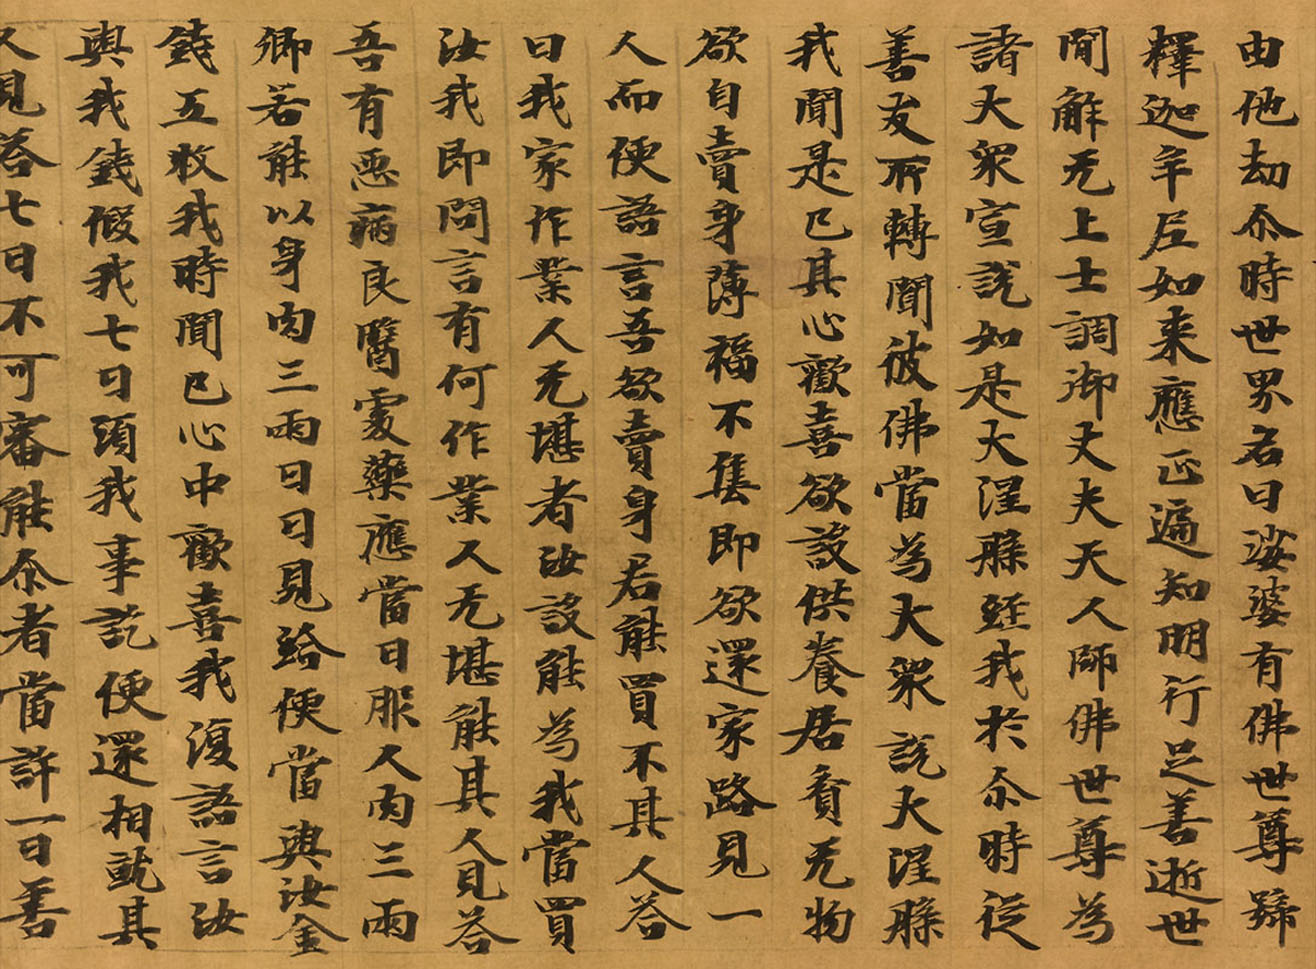 由他劫尒時世界名曰娑婆有佛世尊號
釋迦牟尼如来應正遍知明行足善逝世
間解无上士調御丈夫天人師佛世尊為
諸大眾宣說如是大涅槃經我於尒時從
善友所轉聞彼佛當為大眾說大涅槃
我聞是已其心歡喜欲設供養居貧无物
欲自賣身薄福不售即欲還家路見一
人而便語言吾欲賣身君能買不其人荅
曰我家作業人无堪者汝設能為我當買
汝我即問言有何作業人无堪能其人見荅
吾有惡病良醫處藥應當日服人肉三兩
卿若能以身肉三兩日日見給便當與汝金
錢五枚我時聞已心中歡喜我復語言汝
與我錢假我七日須我事訖便還相就其
人見荅七日不可審能尒者當許一日善